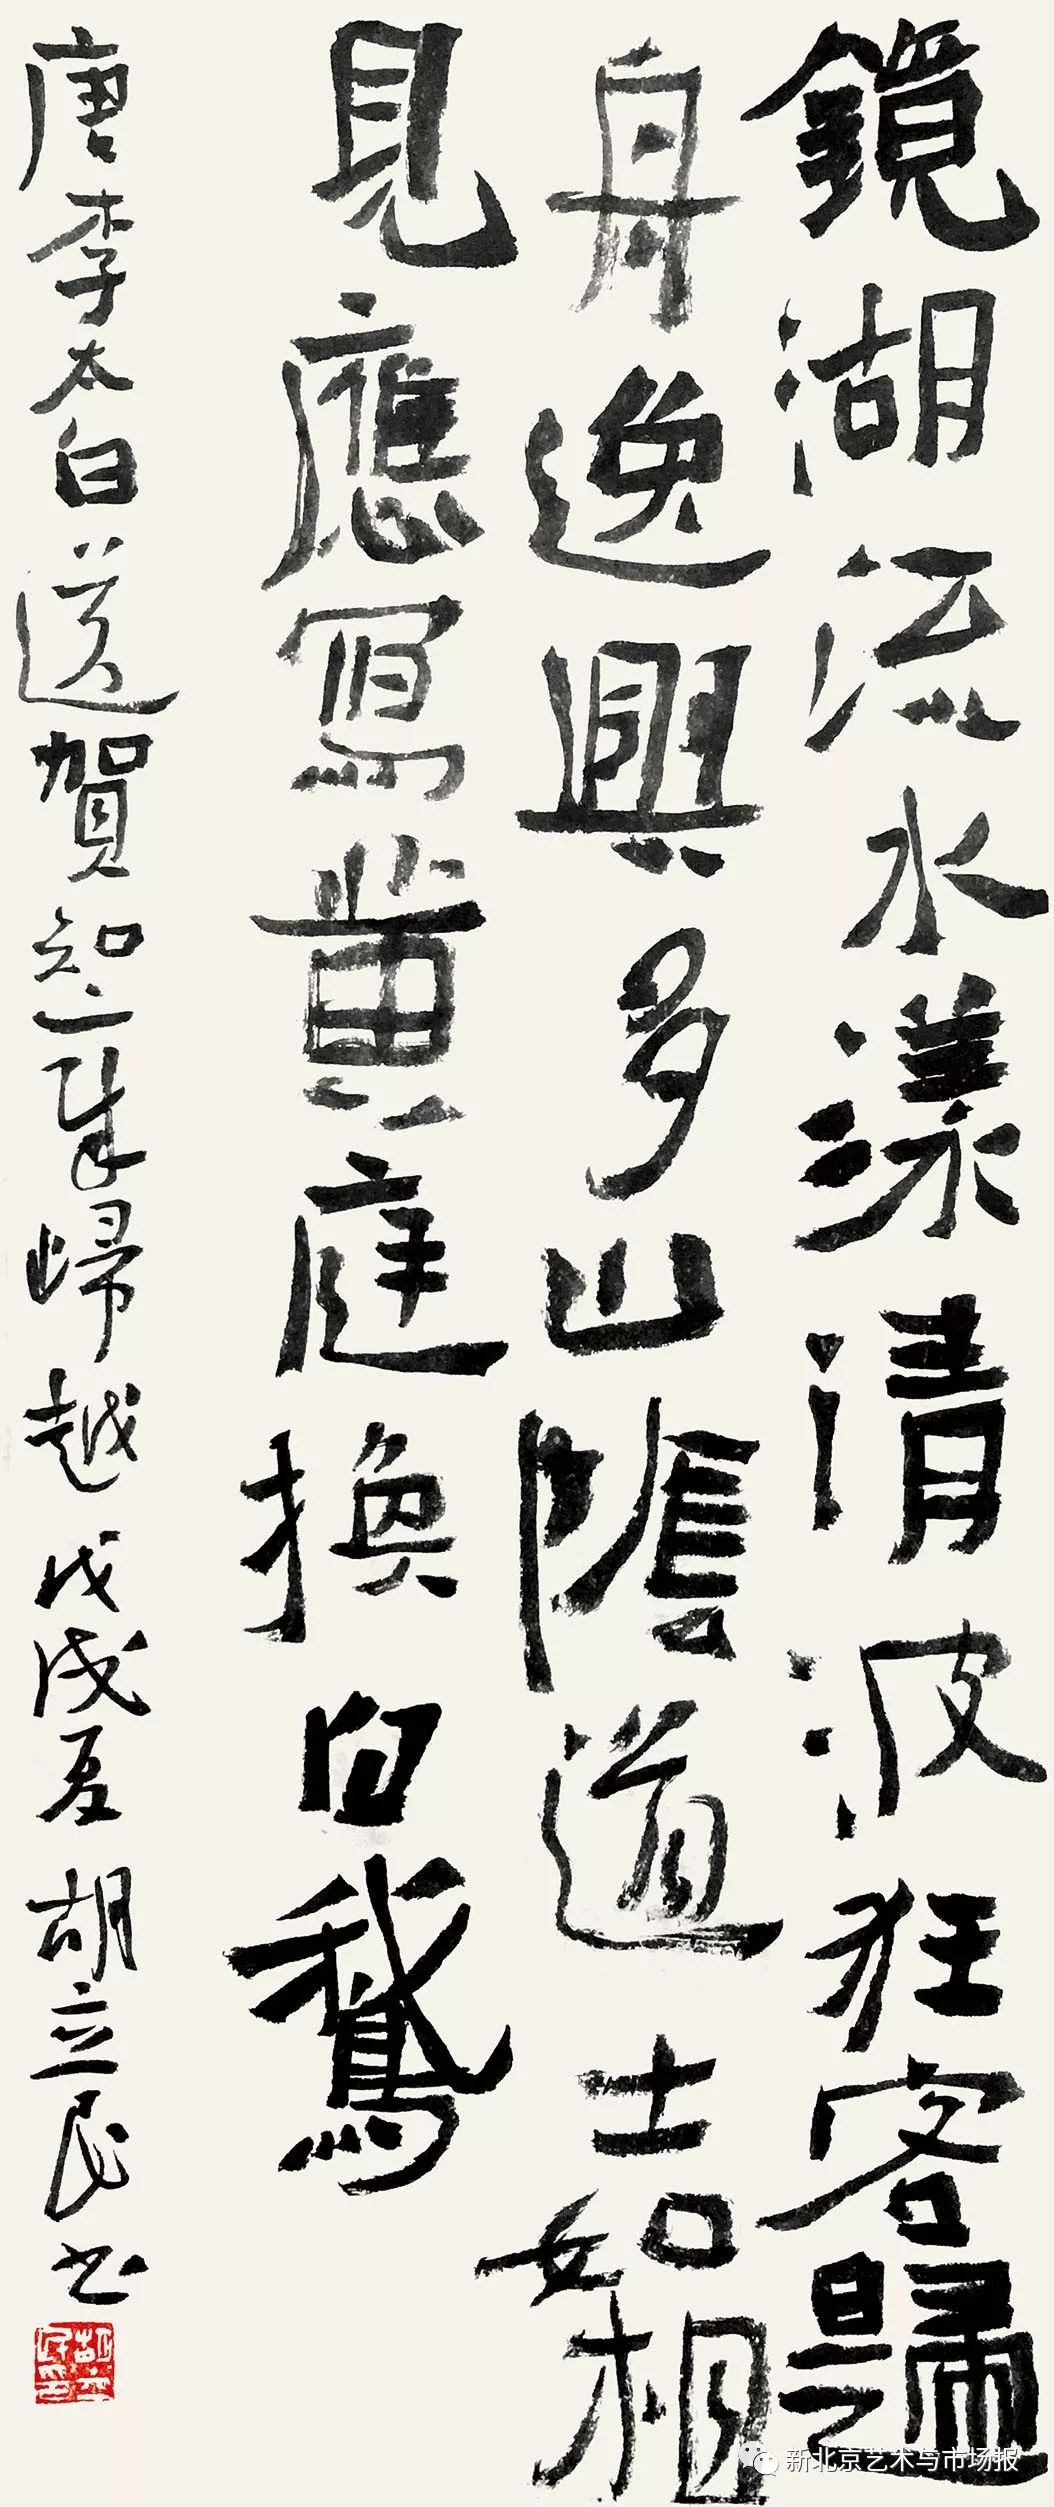 鏡湖流水漾清波狂客歸
舟逸興多山陰道士如相
見應寫黃庭換白鵝
唐李太白送賀知章歸越 戊戌夏 胡立民书
胡立民印
新北京艺术与市场报